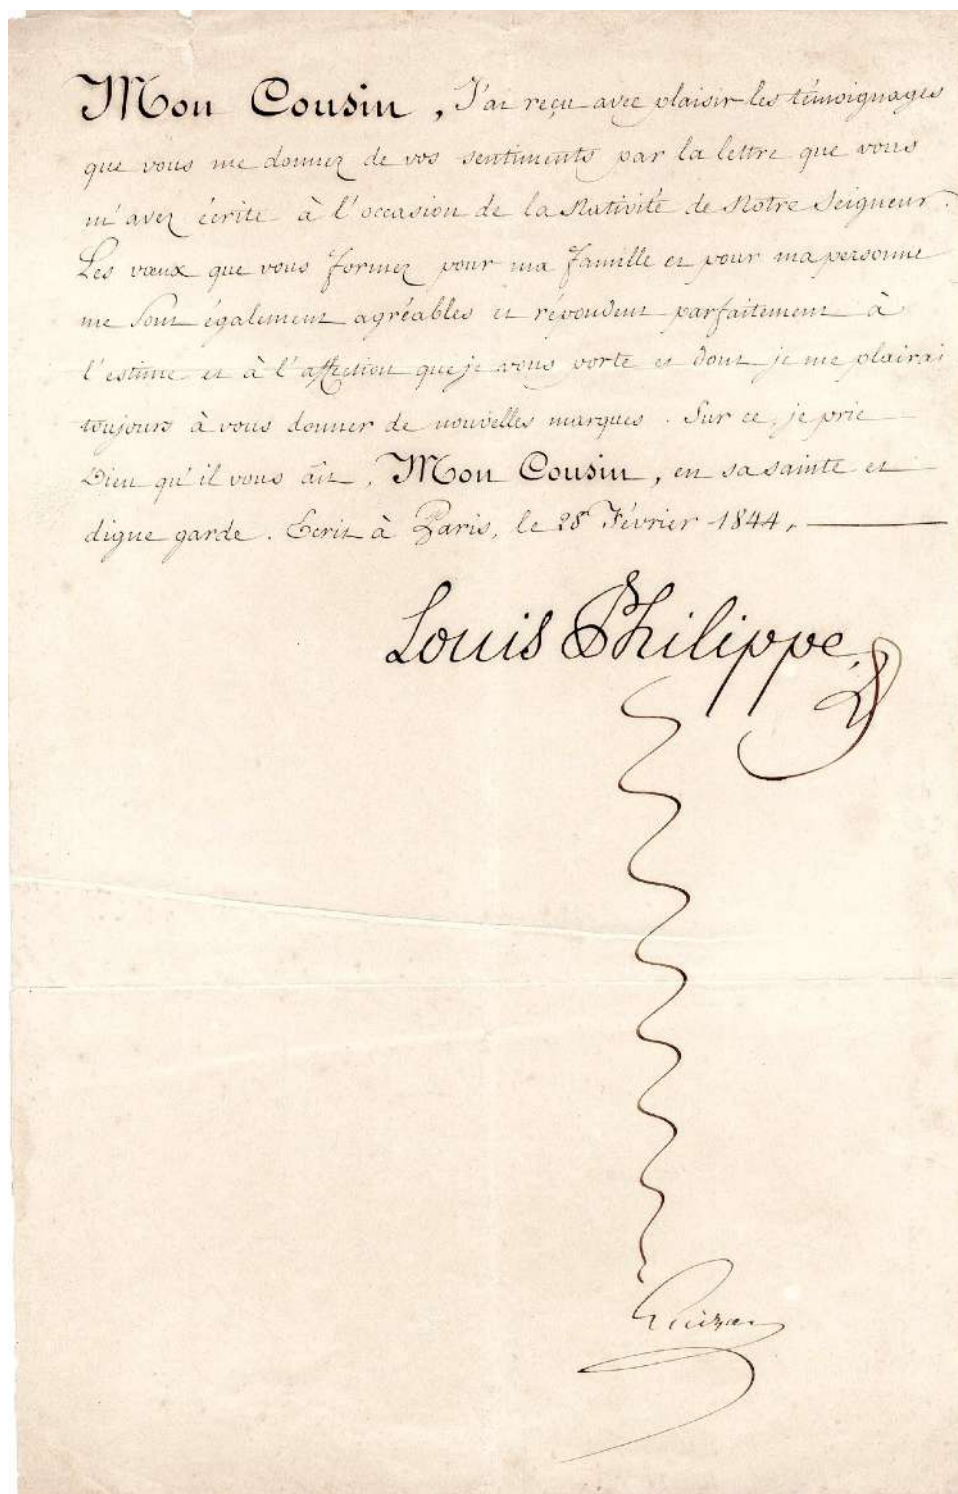 Mon Cousin, J'ai reçu avec plaisir les témoignages
que vous me donnez de vos sentiments par la lettre que vous
m'avez écrite à l'occasion de la Nativité de Notre Seigneur.
Les vœux que vous formez pour ma famille et pour ma personne
me sont également agréables et répondent parfaitement à
l'estime et à l'affection que je vous porte et dont je me plairai
toujours à vous donner de nouvelles marques. Sur ce, je prie
Dieu qu'il vous ait, Mon Cousin, en sa sainte et
digne garde. Ecrit à Paris, le 28 Février 1844.
Louis Philippe
Guizot